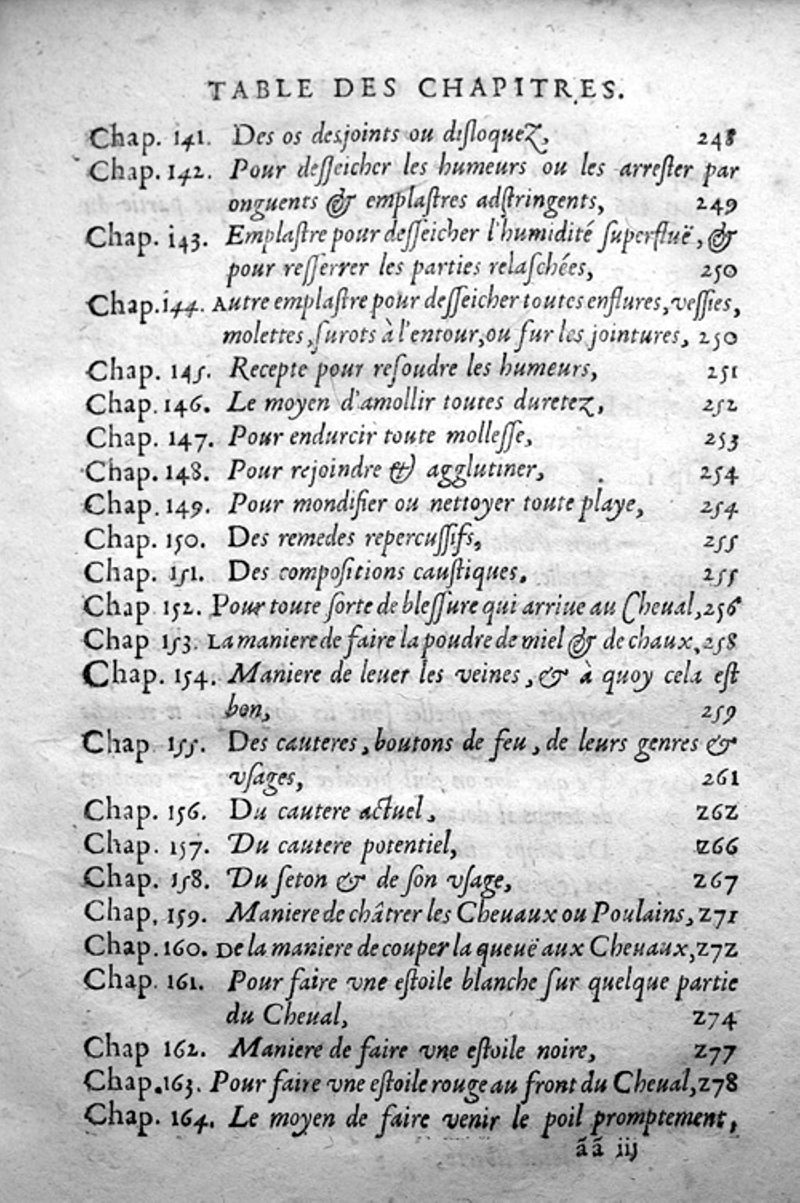 TABLE DES CHAPITRES.
Chap. 141. Des os desjoints ou disloquez, 248
Chap. 142. Pour desseicher les humeurs ou les arrester par
onguents & emplastres adstringents, 249
Chap. 143. Emplastre pour desseicher l'humidité superfluë, &
pour resserrer les parties relaschées, 250
Chap. 144. Autre emplastre pour desseicher toutes enflures, vessies,
molettes, surots à l'entour, ou sur les jointures, 250
Chap. 145. Recepte pour resoudre les humeurs, 251
Chap. 146. Le moyen d'amollir toutes duretez, 252
Chap. 147. Pour endurcir toute mollesse, 253
Chap. 148. Pour rejoindre & agglutiner, 254
Chap. 149. Pour mondifier ou nettoyer toute playe, 254
Chap. 150. Des remedes repercussifs, 255
Chap. 151. Des compositions caustiques. 255
Chap 152. Pour toute sorte de blessure qui arriue au Cheual, 256
Chap 153. La maniere de faire la poudre de miel & de chaux, 258
Chap. 154. Maniere de leuer les veines, & à quoy cela est
bon, 259
Chap. 155. Des cauteres, boutons de feu, de leurs genres &
vsages, 261
Chap. 156. Du cautere actuel, 262
Chap. 157. Du cautere potentiel, 266
Chap. 158. Du seton & de son vsage, 267
Chap. 159. Maniere de châtrer les Cheuaux ou Poulains, 271
Chap. 160. De la maniere de couper la queuë aux Cheuaux, 272
Chap. 161. Pour faire vne estoile blanche sur quelque partie
du Cheual, 274
Chap 162. Maniere de faire vne estoile noire, 277
Chap. 163. Pour faire vne estoile rouge au front du Cheual, 278
Chap. 164. Le moyen de faire venir le poil promptement,
ãã iij